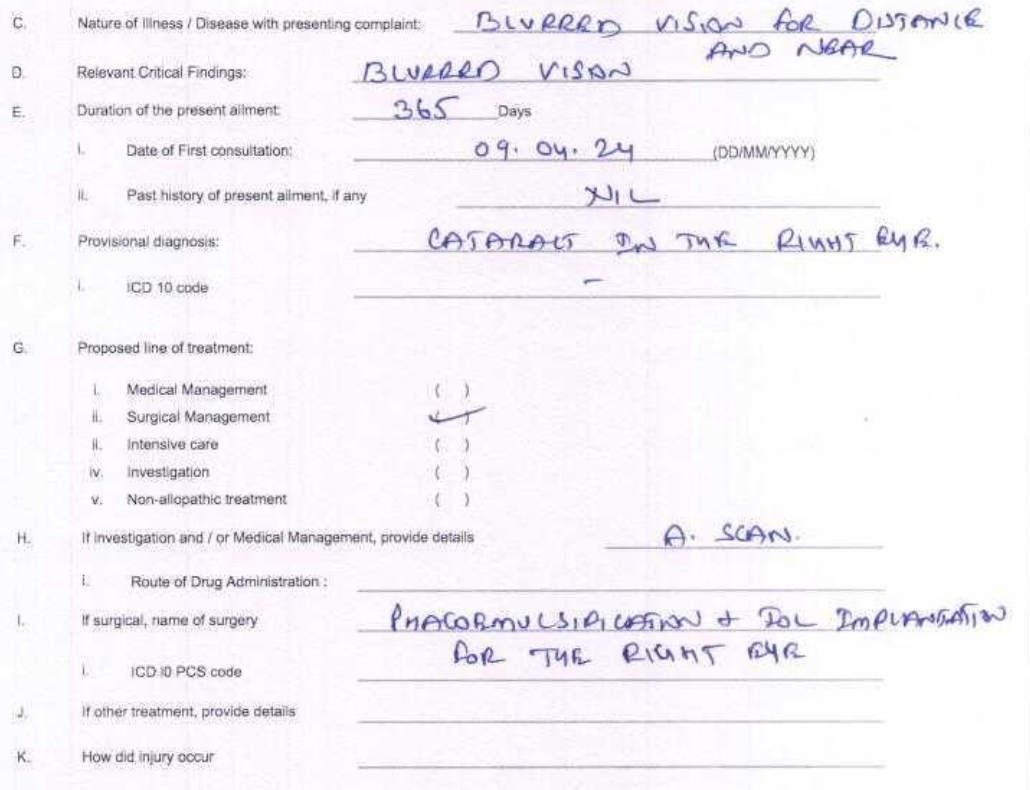 C. Nature of Illness / Disease with presenting complaint: BLURRED VISION FOR DISTANCE
AND NEAR
D. Relevant Critical Findings: BLURRED VISION
E. Duration of the present ailment: 365 Days
i. Date of First consultation: 09.04.24 (DD/MM/YYYY)
ii. Past history of present ailment, if any NIL
F. Provisional diagnosis: CATARACT IN THE RIGHT EYE.
i. ICD 10 code -
G. Proposed line of treatment:
i. Medical Management ( )
ii. Surgical Management (✓)
ii. Intensive care ( )
iv. Investigation ( )
v. Non-allopathic treatment ( )
H. If investigation and / or Medical Management, provide details A. SCAN.
i. Route of Drug Administration :
I. If surgical, name of surgery PHACOEMULSIFICATION + IOL IMPLANTATION
FOR THE RIGHT EYE
i. ICD I0 PCS code
J. If other treatment, provide details
K. How did injury occur